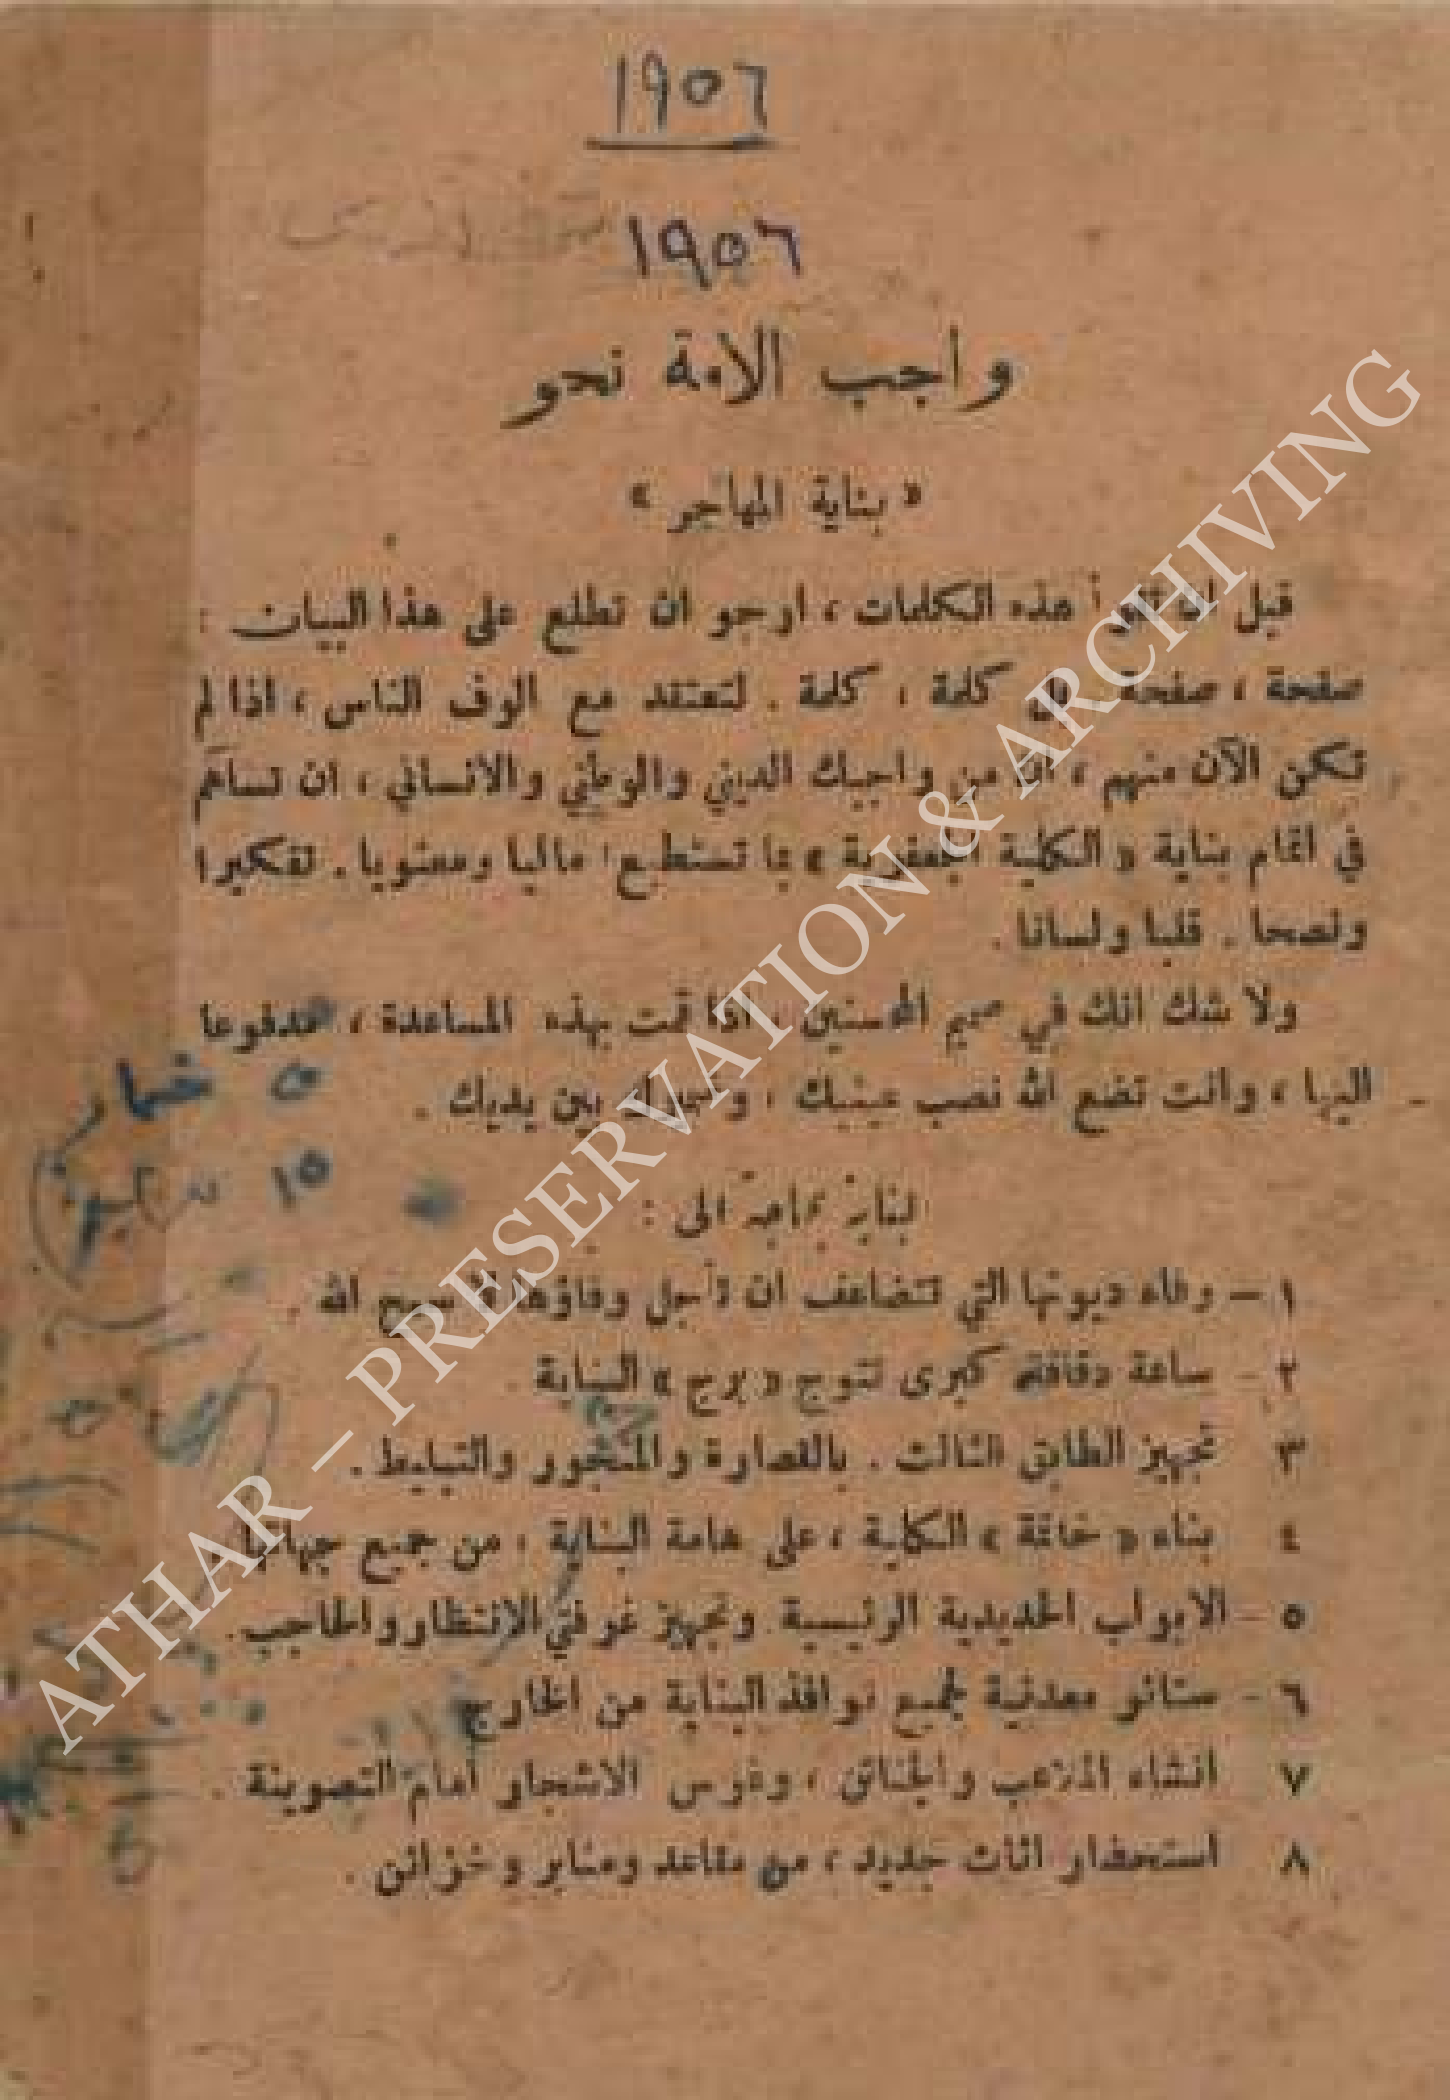 ١٩٥٦
١٩٥٦
واجب الامة نحو
« بناية المهاجر »
قبل ان هذه الكلمات ، ارجو ان تطلع على هذا البيان :
صفحة ، صفحة كلمة ، كلمة . لتعتقد مع الوف الناس ، اذا لم
تكن الآن منهم ، ان من واجبك الديني والوطني والانساني ، ان تساهم
في اتمام بناية « الكلية الجعفرية » بما تستطيع ماليا ومعنويا . تفكيرا
ونصحا . قلبا ولسانا .
ولا شك انك في صميم المحسنين ، اذا قمت بهذه المساعدة ، مدفوعا
اليها ، وانت تضع الله نصب عينيك ، بين يديك .
٥
١٥
البناية بحاجة الى :
١ – وفاء ديونها التي تتضاعف ان تأجل وفاؤها لا سمح الله .
٢ – ساعة دقاقة كبرى تتوج « برج » البناية .
٣ تجهيز الطابق الثالث . بالقصارة والمنجور والتبليط .
٤ بناء « خاتمة » الكلية ، على هامة البناية ، من جميع جهاتها .
٥ – الابواب الحديدية الرئيسية وتجهيز غرفتي الانتظار والحاجب .
٦ – ستائر معدنية لجميع نوافذ البناية من الخارج
٧ انشاء الملاعب والجنائن ، وغرس الاشجار أمام التصوينة .
٨ استحضار اثاث جديد ، من مقاعد ومنابر وخزائن .
ATHAR – PRESERVATION & ARCHIVING